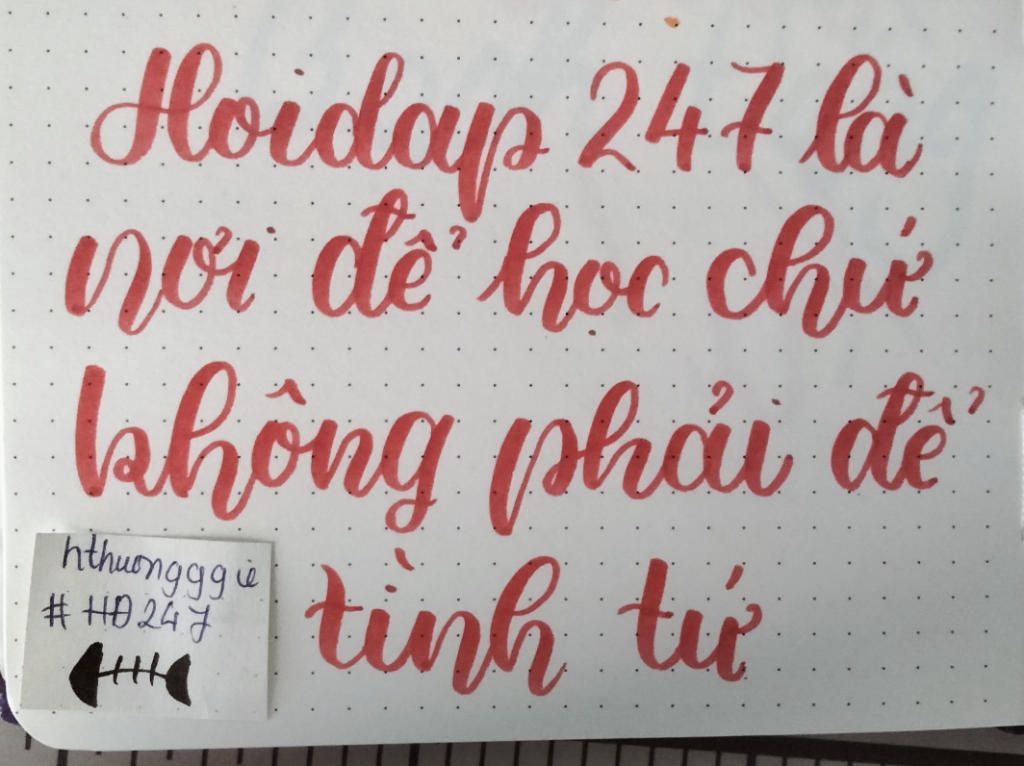 Hoidap 247 là
nơi để học chứ
không phải để
tình tứ
hthuongggie
#HĐ247